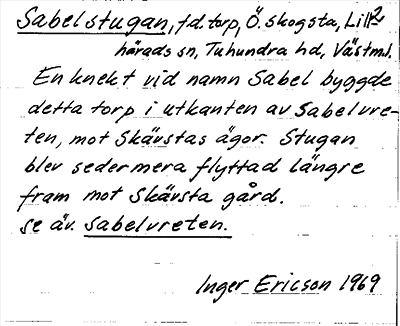 Sabelstugan, f.d. torp, Ö. skogsta, Lill-
härads sn, Tuhundra hd, Västml.
En knekt vid namn Sabel byggde
detta torp i utkanten av Sabelvre-
ten, mot Skävstas ägor. Stugan
blev sedermera flyttad längre
fram mot Skävsta gård.
se äv. Sabelvreten.
Inger Ericson 1969